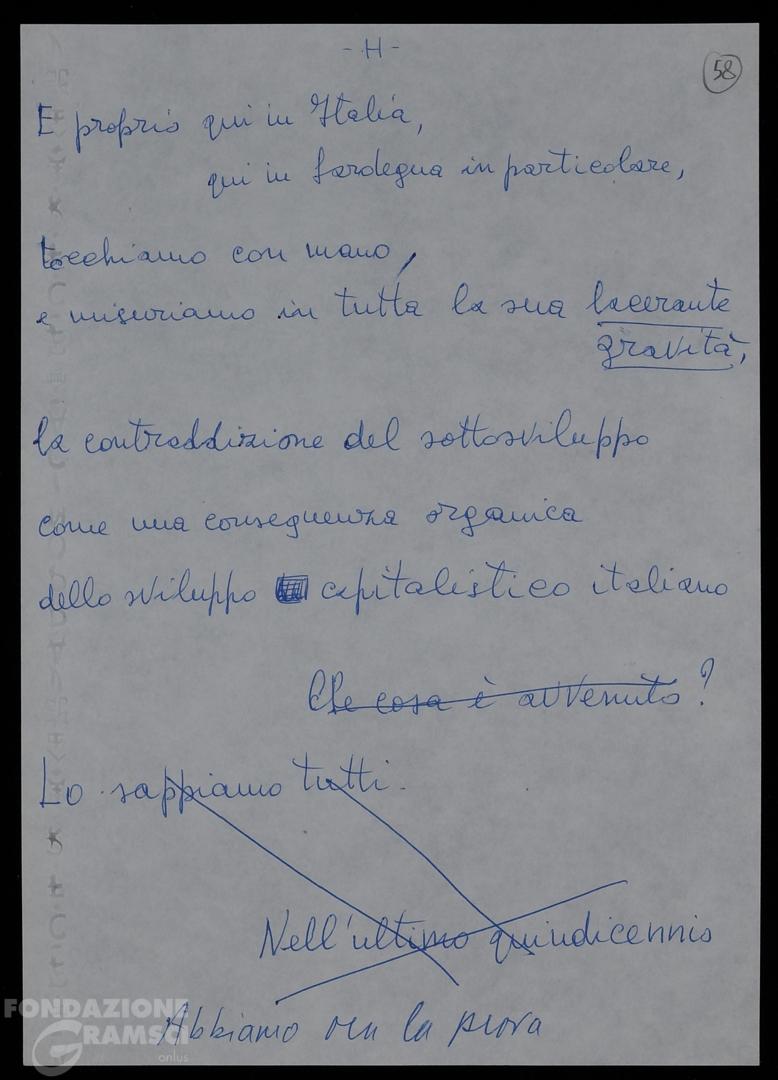 - H -
58
E proprio qui in Italia,
qui in Sardegna in particolare,
tocchiamo con mano,
e misuriamo in tutta la sua lacerante
gravità,
la contraddizione del sottosviluppo
come una conseguenza organica
dello sviluppo capitalistico italiano
Che cosa è avvenuto?
Lo sappiamo tutti.
Nell'ultimo quindicennio
Abbiamo la prova
FONDAZIONE
GRAMSCI
onlus